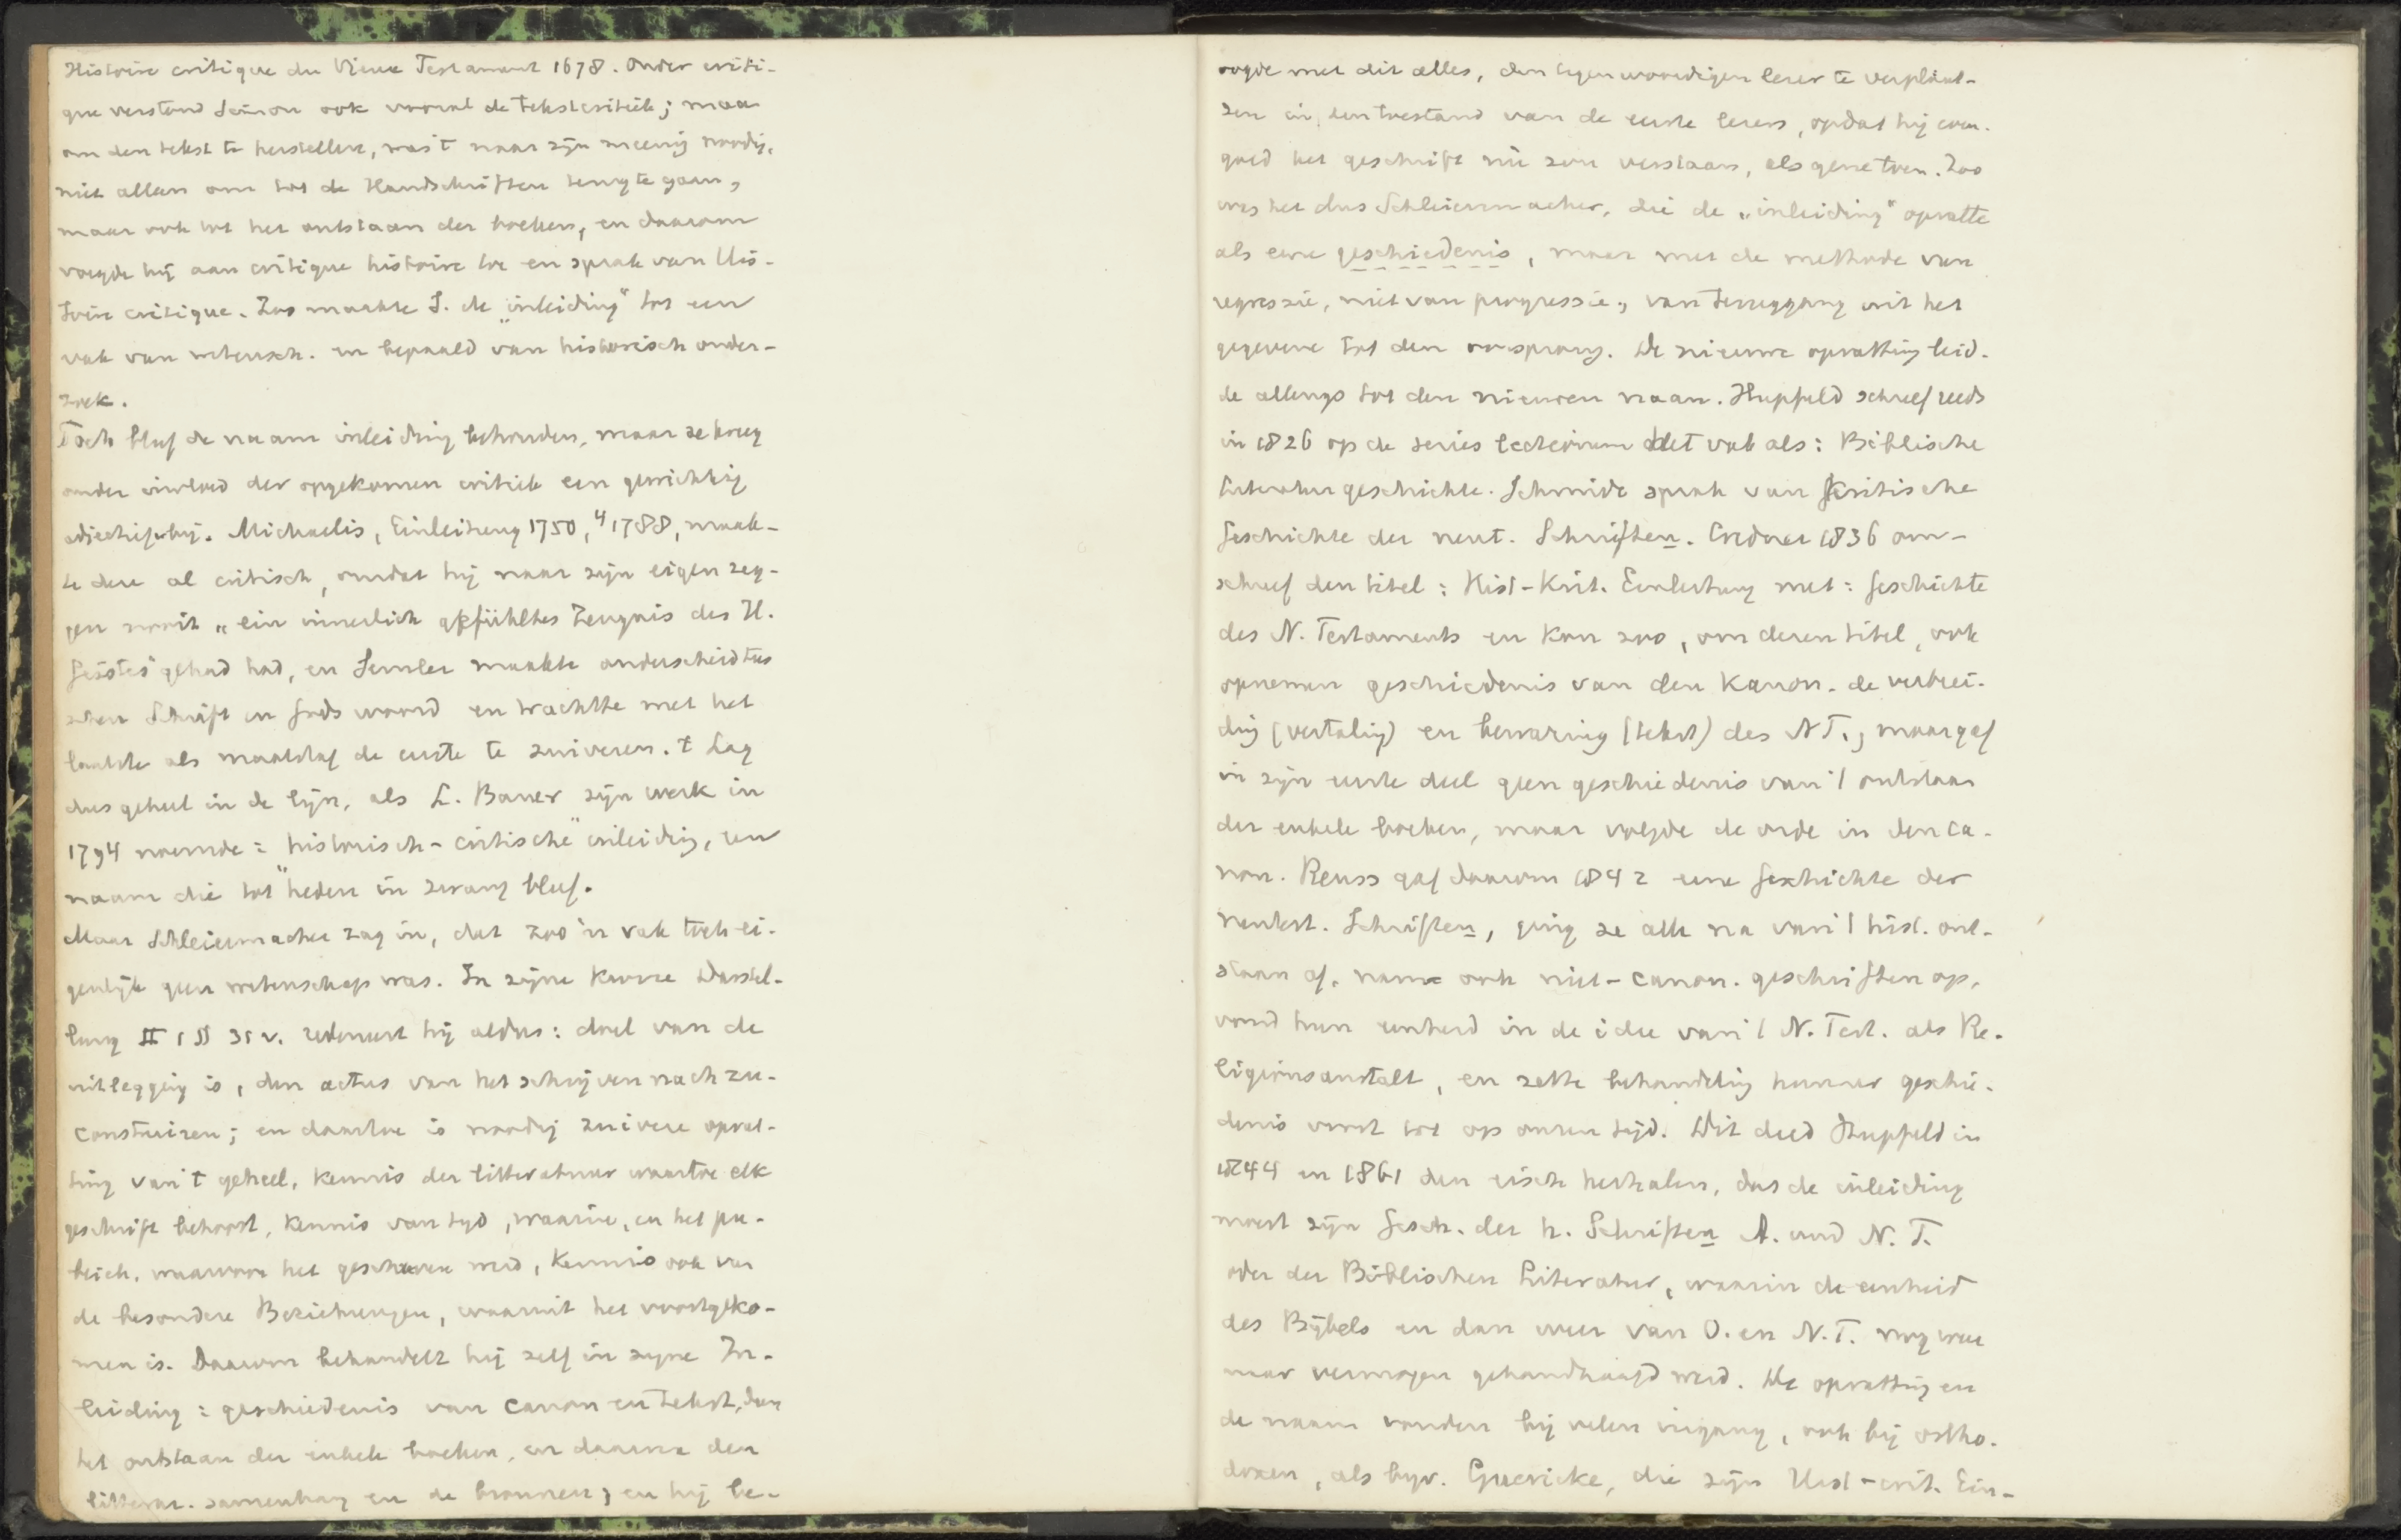 Histoire critique du Vieux Testament 1678. Onder criti-
que verstond Simon ook vooral de tekstcritiek; maar
om den tekst te herstellen, was 't naar zijn meening noodig,
niet alleen om tot de Handschriften terug te gaan,
maar ook tot het ontstaan der boeken, en daarom
voegde hij aan critique histoire toe en sprak van His-
toire critique. Zoo maakte S. de „inleiding" tot een
vak van wetensch. en bepaald van historisch onder-
zoek.
Toch bleef de naam inleiding behouden, maar ze kreeg
onder invloed der opgekomen critiek een gewichtig
adjectief bij. Michaelis, Einleitung 1750, ⁴1788, maak-
te deze al critisch, omdat hij naar zijn eigen zeg-
gen nooit „ein innerlich gefühltes Zeugnis des H.
Geistes" gehad had, en Semler maakte onderscheid tus
schen Schrift en Gods woord en trachtte met het
laatste als maatstaf de eerste te zuiveren. 't Lag
dus geheel in de lijn, als L. Bauer zijn werk in
1794 noemde: historisch-critische" inleiding, een
naam die tot "heden in zwang bleef.
Maar Schleiermacher zag in, dat zoo'n vak toch ei-
genlijk geen wetenschap was. In zijne Kurze Darstel-
lung II 1 §§ 31 v. redeneert hij aldus: doel van de
uitlegging is, den actus van het schrijven nach zu-
construiren; en daartoe is noodig zuivere opvat-
ting van 't geheel, kennis der litteratuur waartoe elk
geschrift behoort, kennis van tijd, waarin, en het pu-
bliek, waarvoor het geschreven werd, kennis ook van
de besondere Beziehungen, waaruit het voortgeko-
men is. Daarom behandelt hij zelf in zijne In-
leiding: geschiedenis van canon en tekst, dan
het ontstaan der enkele boeken, en daarna den
litterar. samenhang en de bronnen; en hij be-
oogde met dit alles, den tegenwoordigen lezer te verplaat-
sen in den toestand van de eerste lezers, opdat hij even-
goed het geschrift nu zou verstaan, als gene toen. Zoo
was het dus Schleiermacher, die de „inleiding" opvatte
als eene geschiedenis, maar met de methode van
regressie, niet van progressie, van teruggang uit het
gegevene tot den oorsprong. De nieuwe opvatting leid-
de allengs tot den nieuwen naam. Hupfeld schreef reeds
in 1826 op de series lectionum het vak als: Biblische
Literaturgeschichte. Schmidt sprak van Kritische
Geschichte der neut. Schriften. Credner 1836 om-
schreef den titel: Hist-Krit. Einleitung met: Geschichte
des N. Testaments en kon zoo, om deren titel, ook
opnemen geschiedenis van den Kanon, de verbrei-
ding (vertaling) en bewaring (tekst) des NT., maar gaf
in zijn eerste deel geen geschiedenis van 't ontstaan
der enkele boeken, maar volgde de orde in den ca-
non. Reuss gaf daarom 1842 eene Geschichte der
neutest. Schriften, ging ze alle na van 't hist. ont-
staan af, nam ook niet-canon. geschriften op,
vond hun eenheid in de idee van 't N. Test. als Re-
ligionsanstalt, en zette behandeling hunner geschie-
denis voort tot op onzen tijd. Dit deed Hupfeld in
1844 en 1861 den eisch herhalen, dat de inleiding
moest zijn Gesch. der h. Schriften A. und N. T.
oder der Biblischen Literatur, waarin de eenheid
des Bijbels en dan weer van O. en N.T. nog weer
naar vermogen gehandhaafd werd. De opvatting en
de naam vonden bij velen ingang, ook bij ortho-
doxen, als bijv. Guericke, die zijn Hist-crit. Ein-